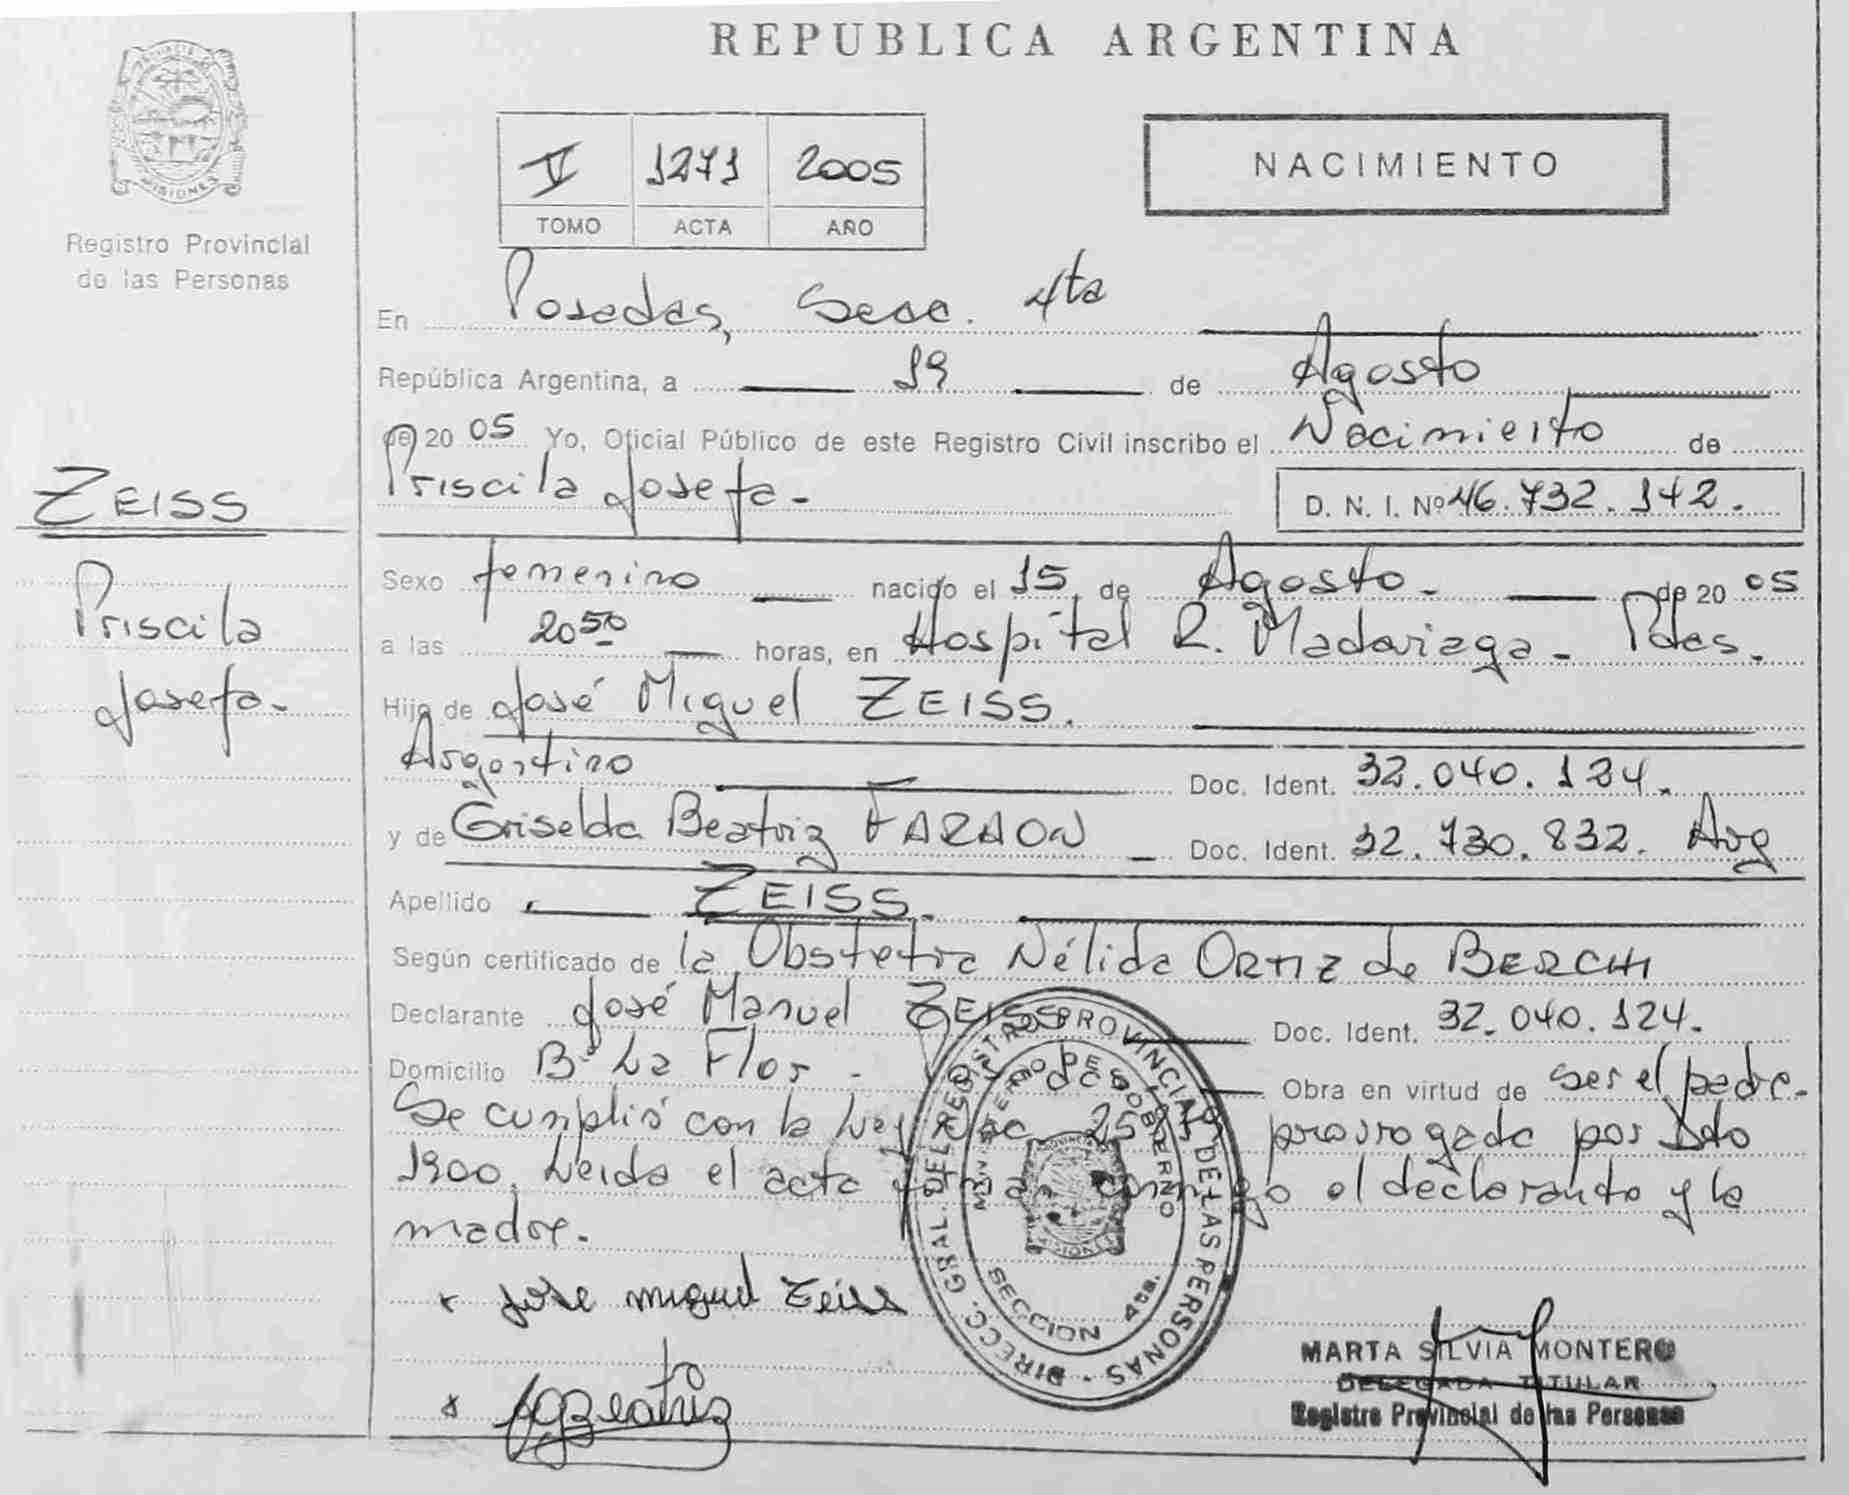 REPUBLICA ARGENTINA
PROVINCIA DE MISIONES
Registro Provincial
de las Personas
V 1271 2005
TOMO ACTA AÑO
NACIMIENTO
En Posadas, Secc. 4ta
República Argentina, a 19 de Agosto
de 20 05 Yo, Oficial Público de este Registro Civil inscribo el Nacimiento de
Priscila Josefa.-
D. N. I. Nº 46.732.142.
ZEISS
Priscila
Josefa.-
Sexo femenino nacido el 15 de Agosto.- de 20 05
a las 20 50 horas, en Hospital R. Madariaga - Pdas.
Hijo de José Miguel ZEISS.
Argentino Doc. Ident. 32.040.124.
y de Griselda Beatriz FARAON Doc. Ident. 32.730.832. Arg
Apellido ZEISS.
Según certificado de la Obstetra Nélida ORTIZ de BERCHI
Declarante José Manuel ZEISS Doc. Ident. 32.040.124.
Domicilio Bº La Flor - Obra en virtud de ser el padre.
Se cumplió con la Ley prorrogada por Dto
1900. Leida el acta conmigo el declarante y la
madre.
x Jose miguel Zeiss
x Beatriz
DIRECC. GRAL. DEL REGISTRO PROVINCIAL DE LAS PERSONAS
MINISTERIO DE GOBIERNO
SECCION 4ta.
MARTA SILVIA MONTERO
DELEGADA TITULAR
Registro Provincial de las Personas